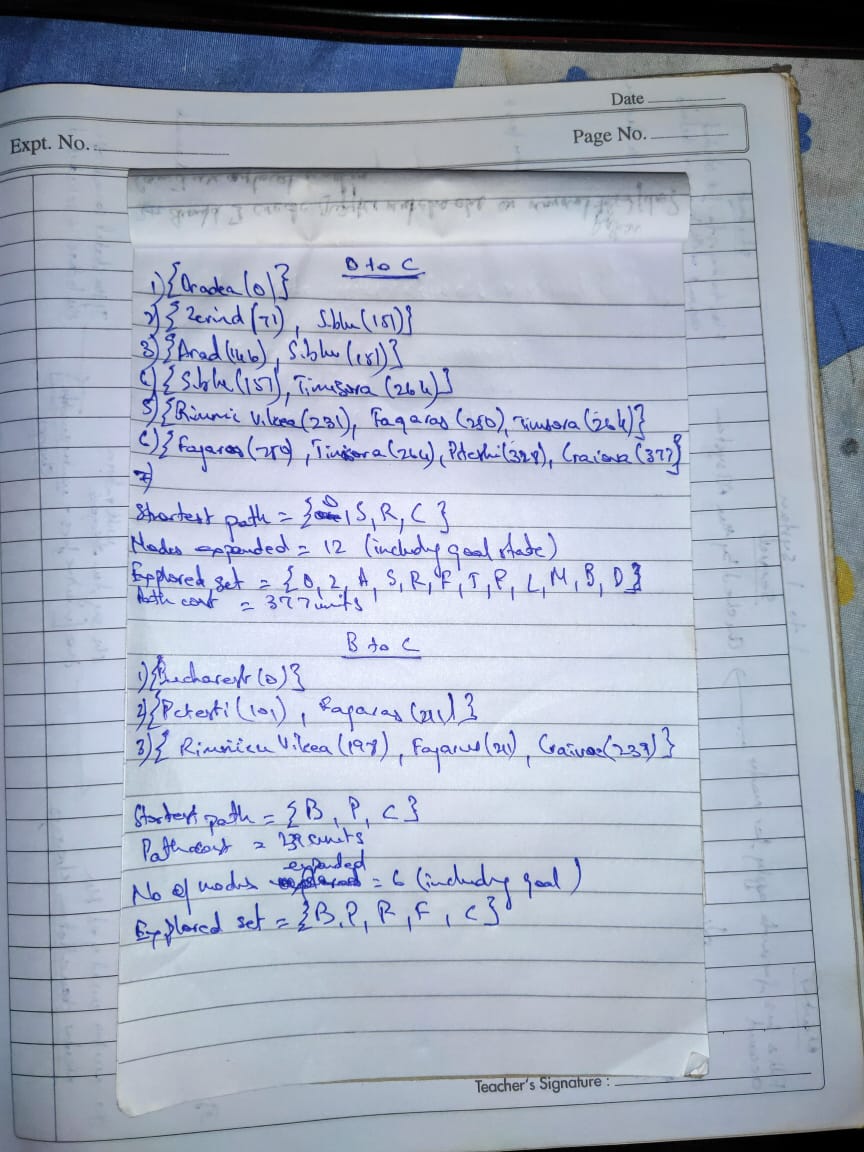 Date
Expt. No.
Page No.
O to C
1) {Oradea (0)}
2) {Zerind (71), Sibiu (151)}
3) {Arad (146), Sibiu (151)}
4) {Sibiu (151), Timisora (264)}
5) {Rimnic Vilcea (231), Fagaras (250), Timisora (264)}
6) {Fagaras (250), Timisora (264), Pitesti (328), Craiova (377)}
7)
Shortest path = {O, S, R, C}
Nodes expanded = 12 (including goal state)
Explored set = {O, Z, A, S, R, F, T, P, L, M, B, D}
Path cost = 377 units
B to C
1) {Bucharest (0)}
2) {Petesti (101), Fagaras (211)}
3) {Rimnicu Vilcea (198), Fagarus (211), Craivoe (239)}
Shortest path = {B, P, C}
Path cost = 239 units
expanded
No of nodes = 6 (including goal)
Explored set = {B, P, R, F, C}
Teacher's Signature :